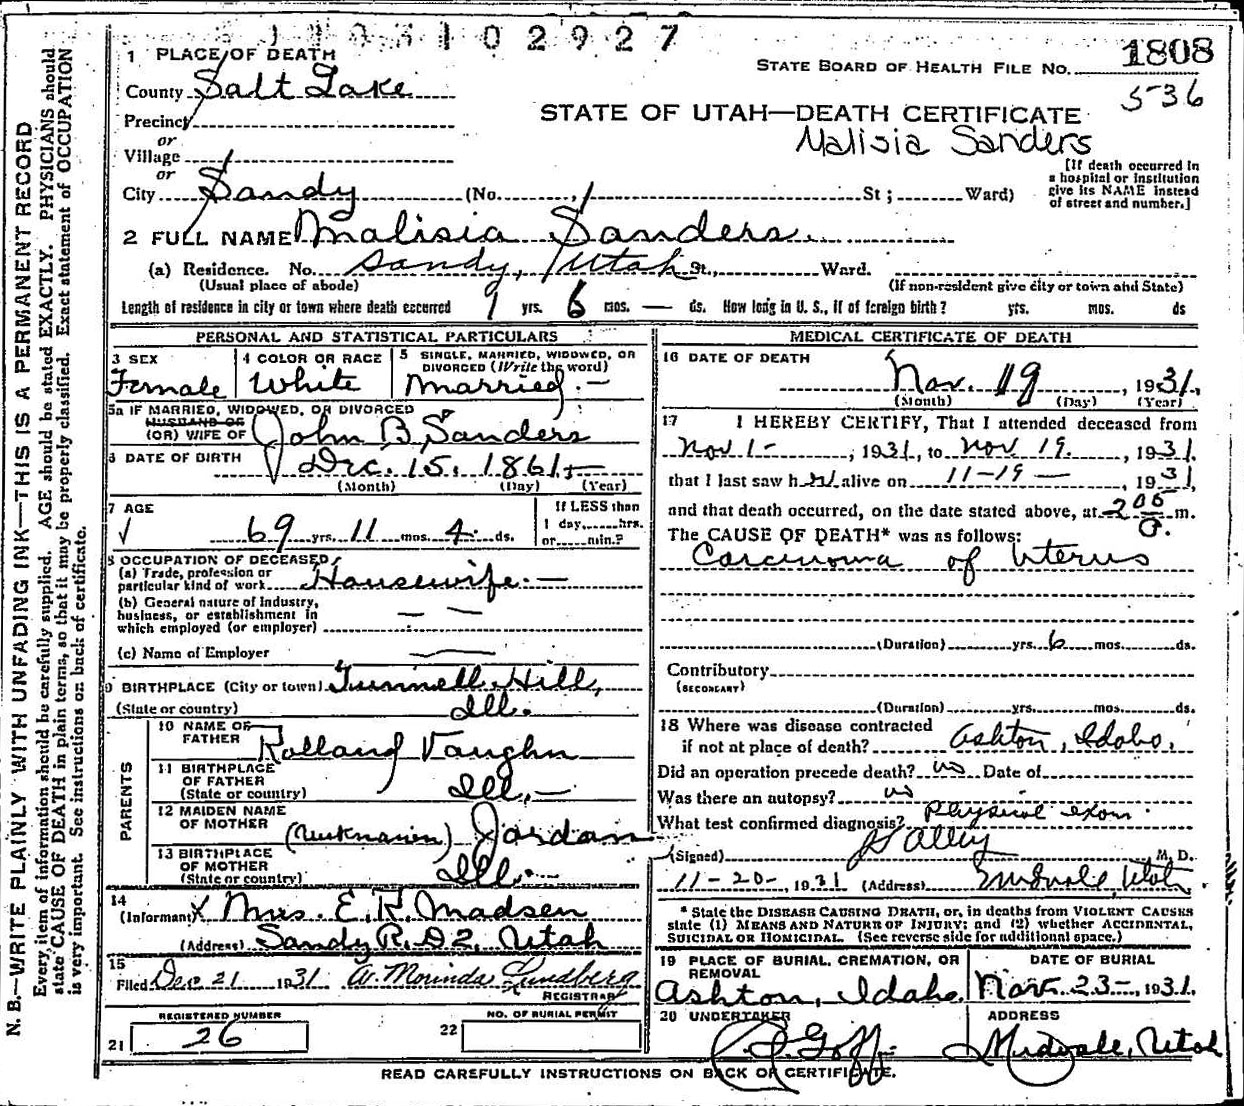 1103102927
1 PLACE OF DEATH
STATE BOARD OF HEALTH FILE NO. 1808
536
County Salt Lake
STATE OF UTAH—DEATH CERTIFICATE
Malisia Sanders
Precinct
or
Village
or
City Sandy (No. St ; Ward)
[If death occurred in
a hospital or institution
give its NAME instead
of street and number.]
2 FULL NAME Malisia Sanders
(a) Residence. No. Sandy, Utah St., Ward.
(Usual place of abode) (If non-resident give city or town and State)
Length of residence in city or town where death occurred 1 yrs. 6 mos. — ds. How long in U. S., if of foreign birth? yrs. mos. ds
PERSONAL AND STATISTICAL PARTICULARS
3 SEX
Female
4 COLOR OR RACE
White
5 SINGLE, MARRIED, WIDOWED, OR
DIVORCED (Write the word)
Married. —
5a IF MARRIED, WIDOWED, OR DIVORCED
HUSBAND OF
(OR) WIFE OF John B Sanders
6 DATE OF BIRTH Dec. 15. 1861
(Month) (Day) (Year)
7 AGE
69 yrs. 11 mos. 4 ds.
If LESS than
1 day, hrs.
or min.?
8 OCCUPATION OF DECEASED
(a) Trade, profession or
particular kind of work Housewife. —
(b) General nature of Industry,
business, or establishment in
which employed (or employer)
(c) Name of Employer
9 BIRTHPLACE (City or town) Tunnell Hill,
(State or country) Ill.
PARENTS
10 NAME OF
FATHER Rolland Vaughn
11 BIRTHPLACE
OF FATHER
(State or country) Ill. —
12 MAIDEN NAME
OF MOTHER (Unknown) Jordan
13 BIRTHPLACE
OF MOTHER
(State or country) Ill. —
14
(Informant) X Mrs. E. R. Madsen
(Address) Sandy R. D 2, Utah
15
Filed Dec 21 1931 W. Mounda Lundberg
REGISTRAR
REGISTERED NUMBER
21 26
NO. OF BURIAL PERMIT
22
MEDICAL CERTIFICATE OF DEATH
16 DATE OF DEATH
Nov. 19, 1931.
(Month) (Day) (Year)
17 I HEREBY CERTIFY, That I attended deceased from
Nov 1 -, 1931, to Nov 19., 1931.
that I last saw her alive on 11-19 —, 1931,
and that death occurred, on the date stated above, at 2 05 P. m.
The CAUSE OF DEATH* was as follows:
Carcinoma of Uterus
(Duration) yrs. 6 mos. ds.
Contributory
(SECONDARY)
(Duration) yrs. mos. ds.
18 Where was disease contracted
if not at place of death? Ashton, Idaho.
Did an operation precede death? no Date of
Was there an autopsy? no
What test confirmed diagnosis? Physical exam.
(Signed) Alley M. D.
11-20-, 1931 (Address) Midvale, Utah
* State the DISEASE CAUSING DEATH, or, in deaths from VIOLENT CAUSES
state (1) MEANS AND NATURE OF INJURY; and (2) whether ACCIDENTAL,
SUICIDAL OR HOMICIDAL. (See reverse side for additional space.)
19 PLACE OF BURIAL, CREMATION, OR
REMOVAL
Ashton, Idaho
DATE OF BURIAL
Nov. 23-, 1931.
20 UNDERTAKER
Goff
ADDRESS
Midvale, Utah
READ CAREFULLY INSTRUCTIONS ON BACK OF CERTIFICATE.
N. B.—WRITE PLAINLY WITH UNFADING INK—THIS IS A PERMANENT RECORD
Every item of information should be carefully supplied. AGE should be stated EXACTLY. PHYSICIANS should
state CAUSE OF DEATH in plain terms, so that it may be properly classified. Exact statement of OCCUPATION
is very important. See instructions on back of certificate.